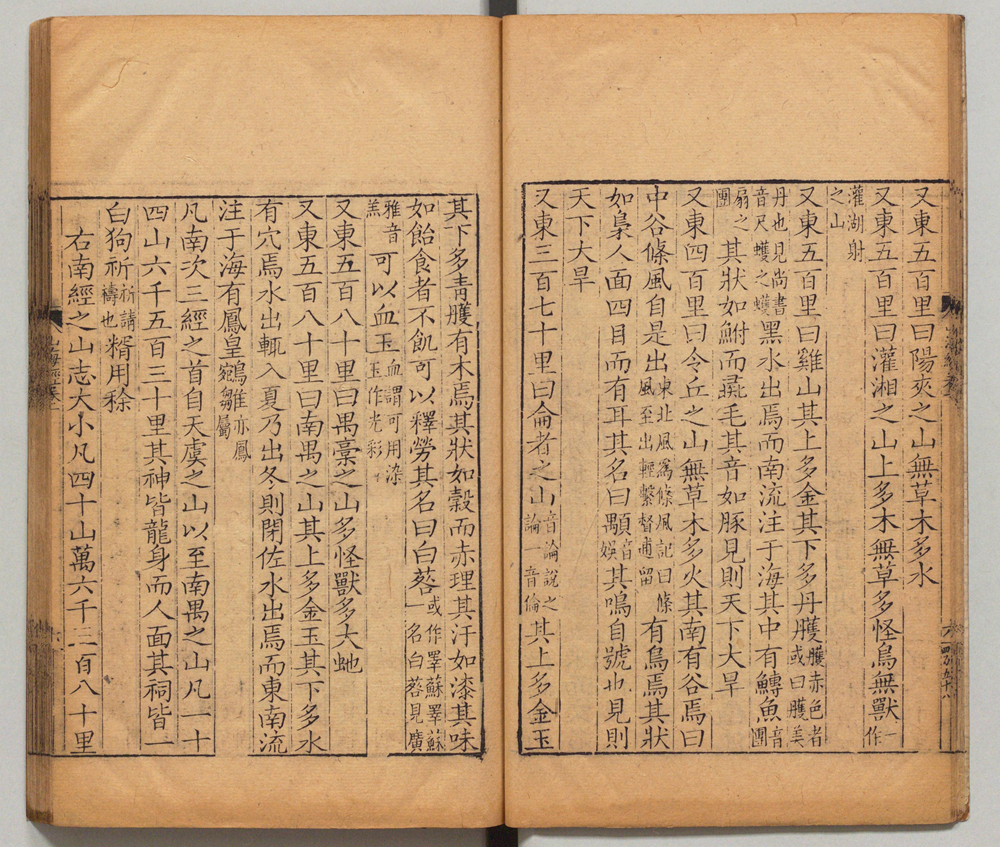 又東五百里曰陽夾之山無草木多水
又東五百里曰灌湘之山上多木無草多怪鳥無獸一作
灌湖射之山
又東五百里曰雞山其上多金其下多丹雘雘赤色者或曰雘美
丹也見尚書音尺蠖之蠖黑水出焉而南流注于海其中有鱄魚音團
扇之團其狀如鮒而彘毛其音如豚見則天下大旱
又東四百里曰令丘之山無草木多火其南有谷焉曰
中谷條風自是出東北風爲條風記曰條風至出輕繫督逋留有鳥焉其狀
如梟人面四目而有耳其名曰顒音娛其鳴自號也見則
天下大旱
又東三百七十里曰侖者之山音論說之論一音倫其上多金玉
其下多青雘有木焉其狀如榖而赤理其汗如漆其味
如飴食者不飢可以釋勞其名曰白䓘或作睪蘇睪蘇一名白䓘見廣
雅音羔可以血玉血謂可用染玉作光彩
又東五百八十里曰禺稾之山多怪獸多大虵
又東五百八十里曰南禺之山其上多金玉其下多水
有穴焉水出輒入夏乃出冬則閉佐水出焉而東南流
注于海有鳳皇鵷雛亦鳳宛雛屬
凡南次三經之首自天虞之山以至南禺之山凡一十
四山六千五百三十里其神皆龍身而人面其祠皆一
白狗祈祈請禱也糈用稌
右南經之山志大小凡四十山萬六千三百八十里